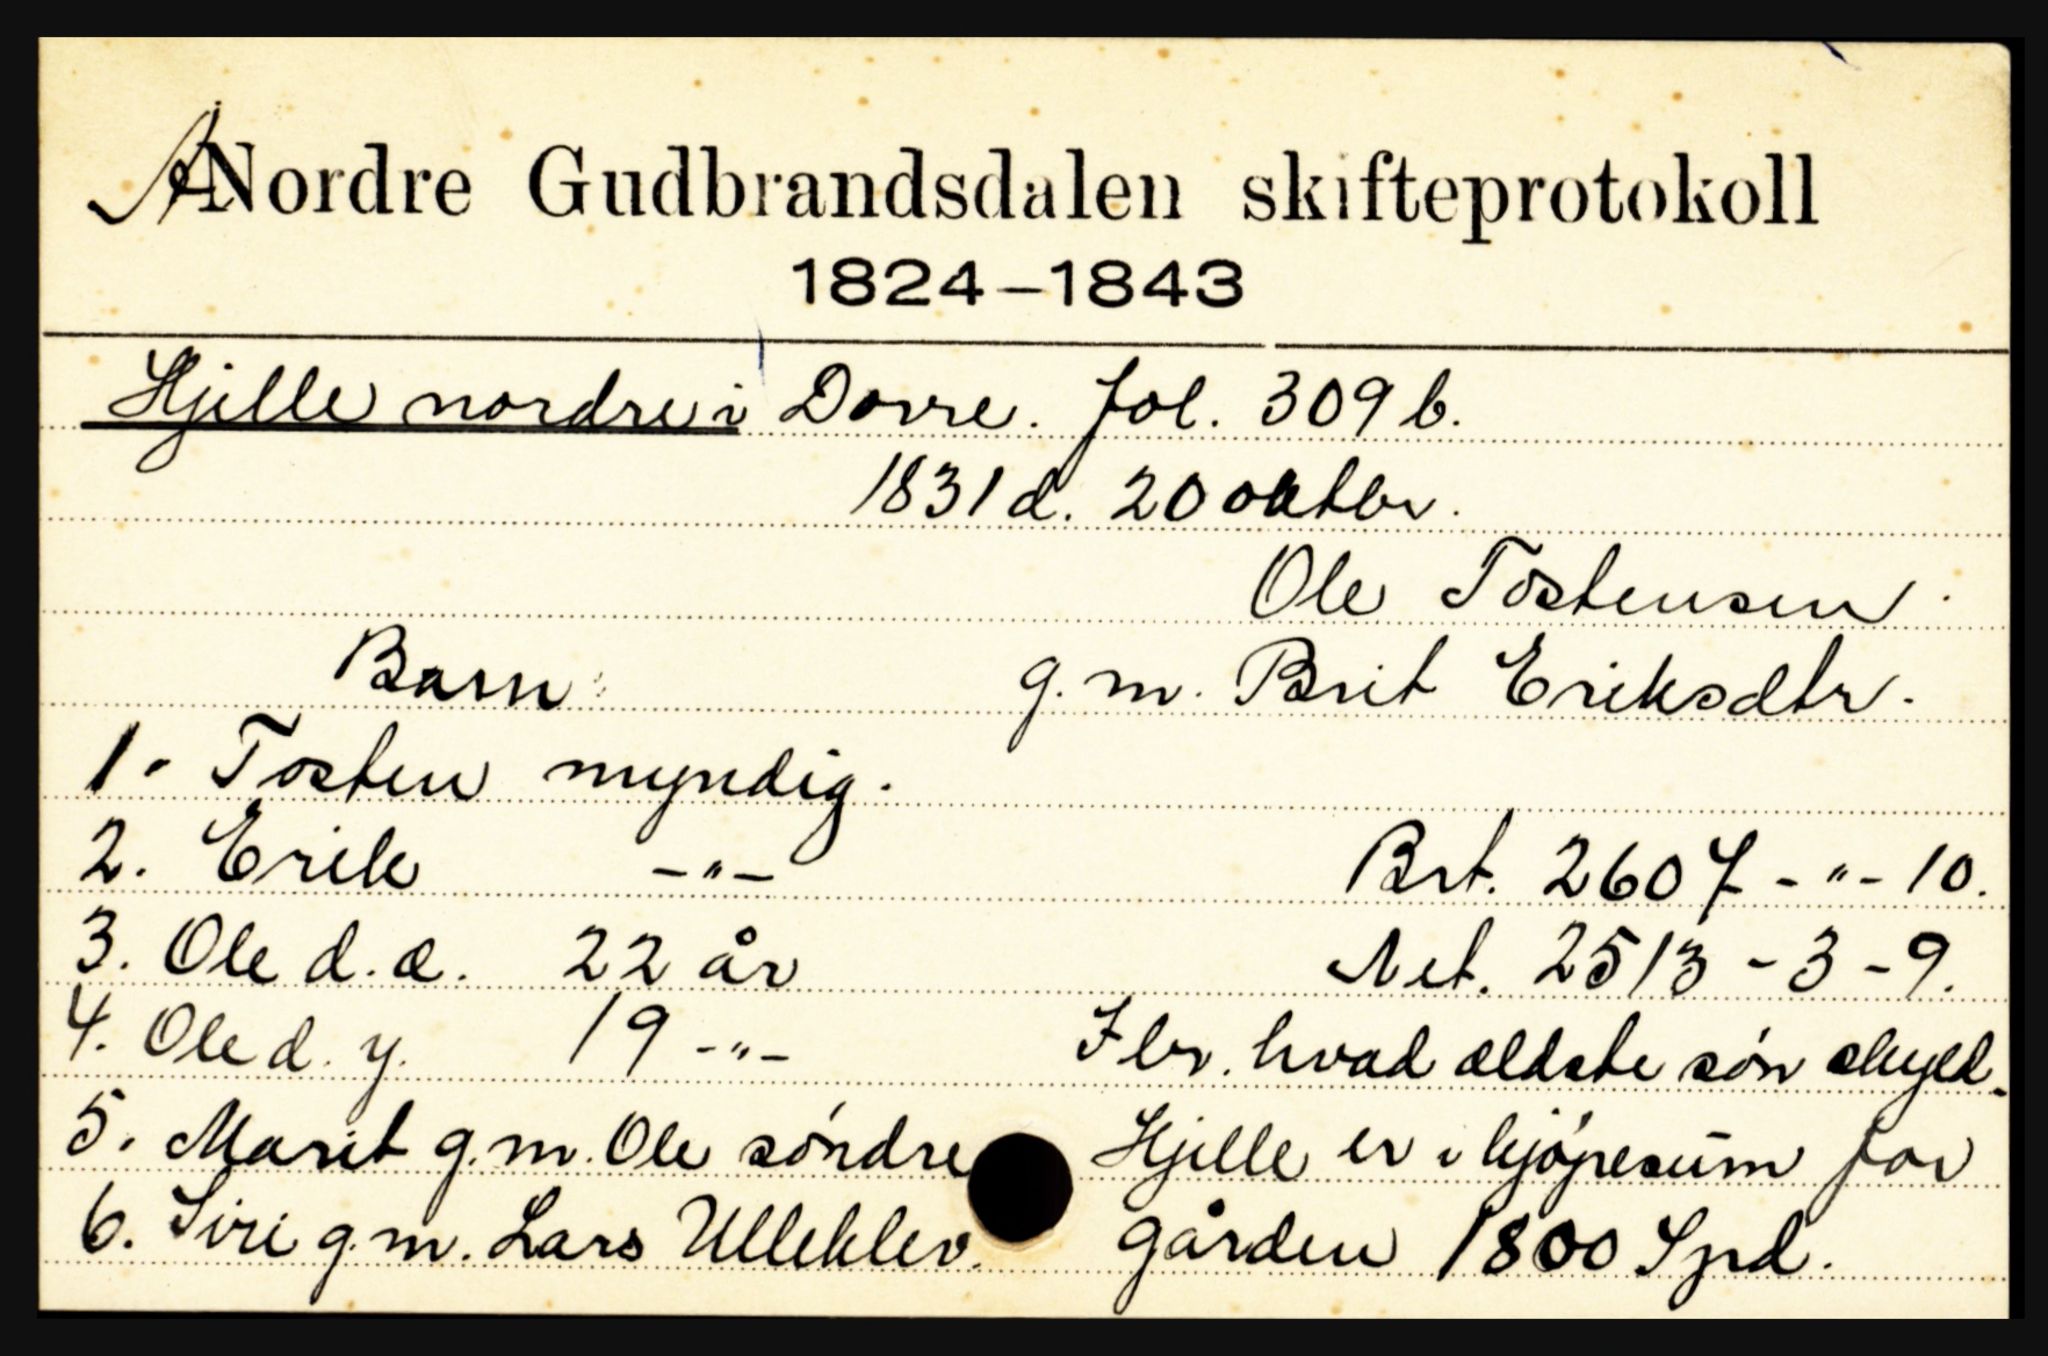 Nordre Gudbrandsdalen skifteprotokoll
1824-1843
Hjelle nordre i Dovre. fol. 309 b.
1831 d. 20 oktbr.
Ole Tostensen
Barn: g. m. Brit Eriksdtr.
1. Tosten myndig.
2. Erik -"- Brt. 2607 - " - 10.
3. Ole d. æ. 22 år Net. 2513 - 3 - 9.
4. Ole d. y. 19 -"- Ibr. hvad ældste søn skyld.
5. Marit g. m. Ole søndre Hjelle er i kjøpesum for
6. Siri g. m. Lars Ulleklev. gården 1800 Spd.